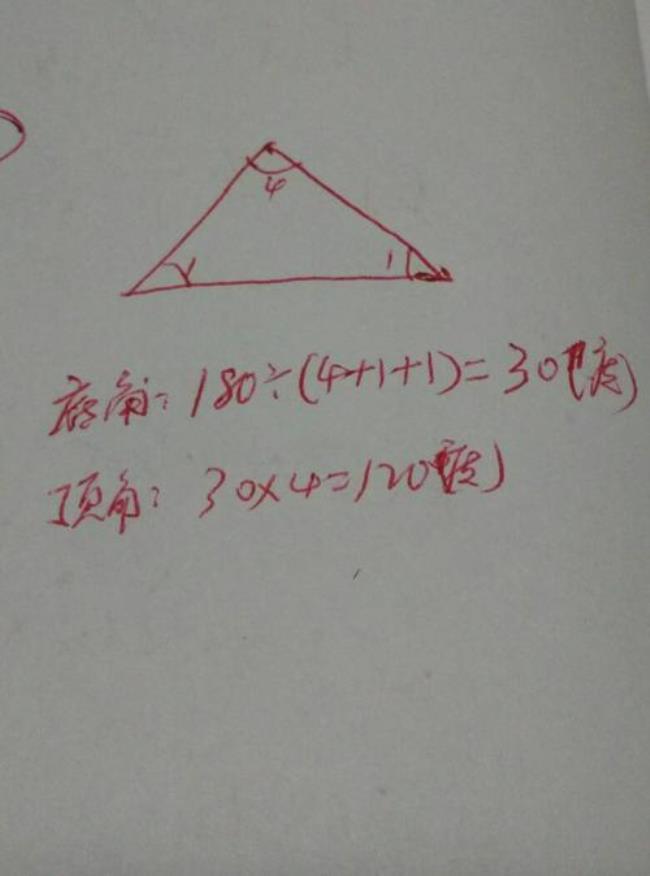 4
1
1
底角：180÷(4+1+1)=30(度)
顶角：30×4=120(度)